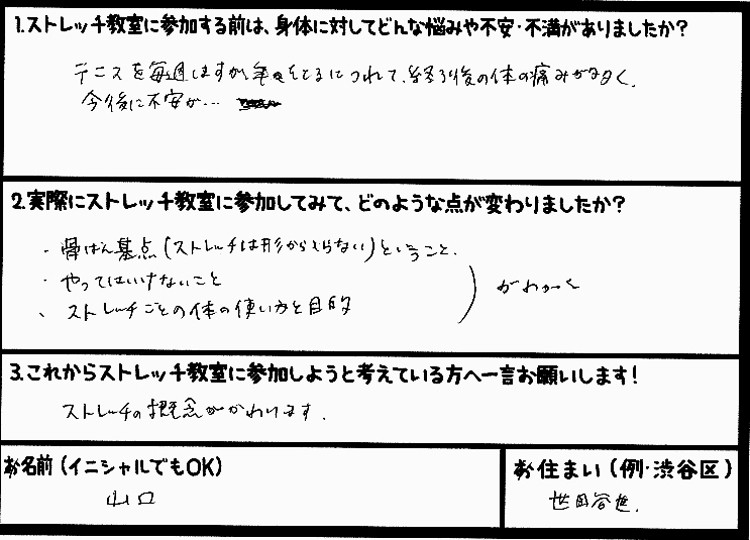 1.ストレッチ教室に参加する前は、身体に対してどんな悩みや不安・不満がありましたか?
テニスを毎週しますが、年をとるにつれて、終了後の体の痛みが多く、
今後に不安が…
2.実際にストレッチ教室に参加してみて、どのような点が変わりましたか?
・骨ばん基点(ストレッチは形から入らない)ということ、
・やってはいけないこと
がわかった
、ストレッチごとの体の使い方と目的
3.これからストレッチ教室に参加しようと考えている方へ一言お願いします!
ストレッチの概念がかわります.
お名前(イニシャルでもOK)
山口
お住まい(例・渋谷区)
世田谷区.